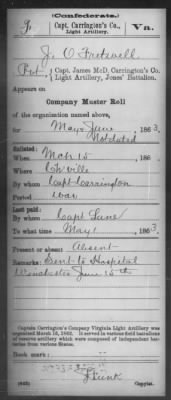 (Confederate.)
Capt. Carrington's Co.,
Light Artillery.
Va.
J. O Fretwell
Pvt
Capt. James McD. Carrington's Co.
Light Artillery, Jones' Battalion.
Appears on
Company Muster Roll
of the organization named above,
for May & June 1863.
Not dated
Enlisted:
When Mch 15
Where Ch'ville
By whom Capt Carrington
Period War
Last paid:
By whom Capt
To what time May 1 1863.
Present or absent: Absent
Remarks: Sent to Hospital
Winchester June 15th
Captain Carrington's Company Virginia Light Artillery was
organized March 10, 1862. It served in various field battalions
of reserve artillery which were composed of independent bat-
teries from various States.
Book mark:
Copyist.